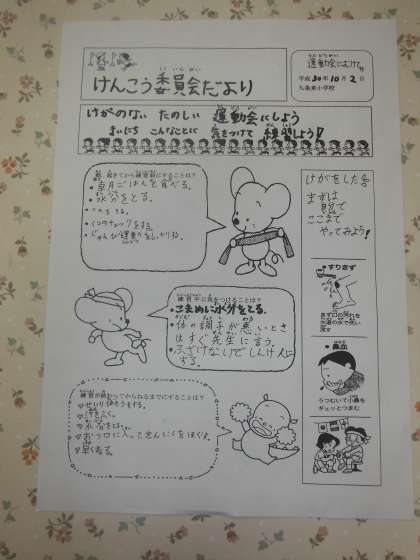 けんこう委員会だより
運動会にむけて
平成30年10月2日
九条東小学校
けがのない たのしい 運動会にしよう
まいにち こんなことに 気をつけて 練習しよう!
朝、起きてから練習前にすることは?
・朝ごはんを食べる。
・水分をとる。
・じゅんび運動をしっかりする。
練習中に気をつけることは?
・こまめに水分をとる。
・体の調子が悪いとき
はすぐ先生に言う。
・ふざけないでしんけんに
する。
練習が終わってからねるまでにすることは?
せいり体そうをする。
汗をふく。
水分をとる。
おフロに入ってきんにくをほぐす。
早くねる。
けがをした時
まずは
自分で
ここまで
やってみよう!
すりきず
まず口の汚れを
水道の水で洗い
流す
鼻血
うつむいて小鼻を
ギュッとつまむ